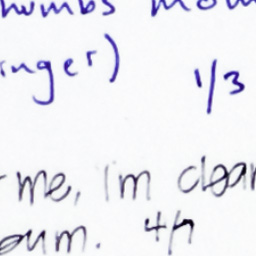 humbs mou
inger) 1/3
me, i'm clear
oum. 4/7